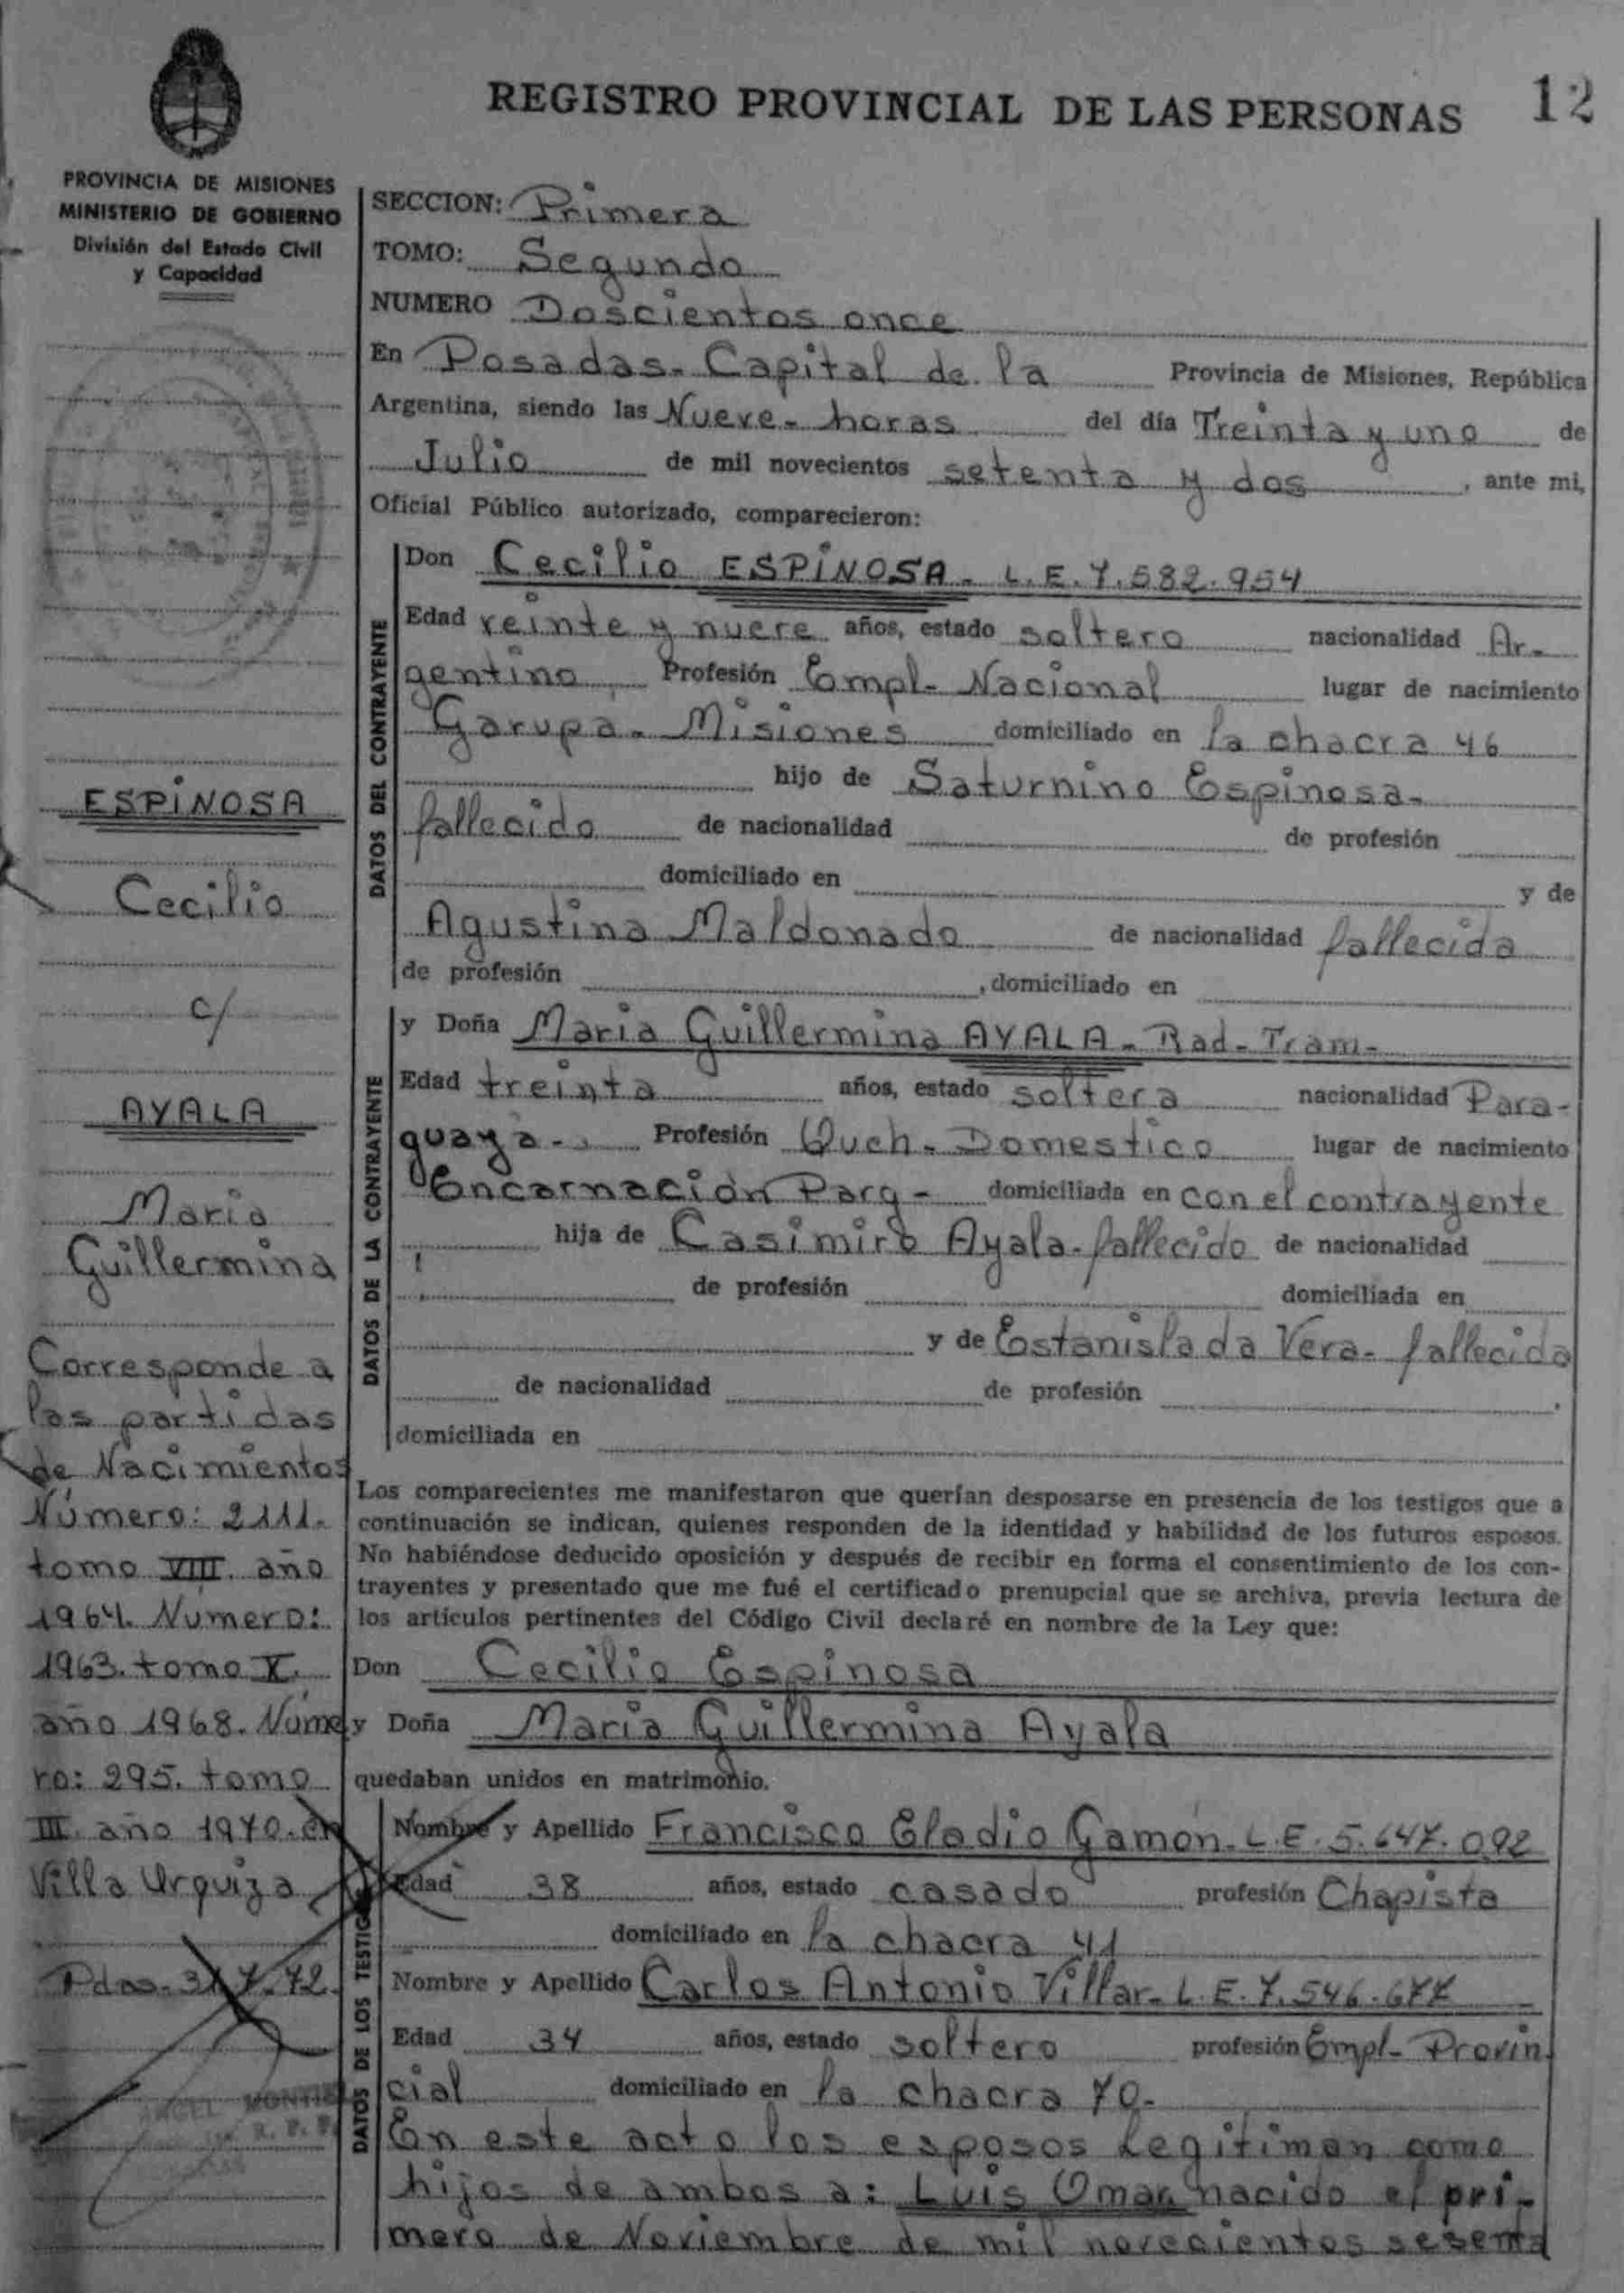 REGISTRO PROVINCIAL DE LAS PERSONAS 12
PROVINCIA DE MISIONES
MINISTERIO DE GOBIERNO
División del Estado Civil
y Capacidad
ESPINOSA
Cecilio
c/
AYALA
Maria
Guillermina
Corresponde a
las partidas
de Nacimientos
Número: 2111.
tomo VIII. año
1964. Numero:
1963. tomo X.
año 1968. Núme
ro: 295. tomo
III. año 1970. en
Villa Urquiza
Pdas. 31.7.72.
ANGEL MONTIE
R. P. P.
SECCION: Primera
TOMO: Segundo
NUMERO Doscientos once
En Posadas- Capital de la Provincia de Misiones, República
Argentina, siendo las Nueve- horas del día Treinta y uno de
Julio de mil novecientos setenta y dos, ante mi,
Oficial Público autorizado, comparecieron:
DATOS DEL CONTRAYENTE
Don Cecilio ESPINOSA- L.E. 7.582.954
Edad veinte y nueve años, estado soltero nacionalidad Ar-
gentino Profesión Empl- Nacional lugar de nacimiento
Garupá- Misiones domiciliado en la chacra 46
hijo de Saturnino Espinosa-
fallecido de nacionalidad de profesión
domiciliado en y de
Agustina Maldonado de nacionalidad fallecida
de profesión , domiciliado en
DATOS DE LA CONTRAYENTE
y Doña Maria Guillermina AYALA- Rad- Tram-
Edad treinta años, estado soltera nacionalidad Para-
guaya-. Profesión Queh- Domestico lugar de nacimiento
Encarnación Parg- domiciliada en con el contrayente
hija de Casimiro Ayala- fallecido de nacionalidad
de profesión domiciliada en
y de Estanislada Vera- fallecida
de nacionalidad de profesión
domiciliada en
Los comparecientes me manifestaron que querían desposarse en presencia de los testigos que a
continuación se indican, quienes responden de la identidad y habilidad de los futuros esposos.
No habiéndose deducido oposición y después de recibir en forma el consentimiento de los con-
trayentes y presentado que me fué el certificado prenupcial que se archiva, previa lectura de
los artículos pertinentes del Código Civil declaré en nombre de la Ley que:
Don Cecilio Espinosa
y Doña Maria Guillermina Ayala
quedaban unidos en matrimonio.
DATOS DE LOS TESTIGOS
Nombre y Apellido Francisco Eladio Gamón- L.E. 5.647.092
Edad 38 años, estado casado profesión Chapista
domiciliado en la chacra 41
Nombre y Apellido Carlos Antonio Villar- L.E. 7.546.677
Edad 34 años, estado soltero profesión Empl- Provin
cial domiciliado en la chacra 70-
En este acto los esposos Legitiman como
hijos de ambos a: Luis Omar nacido el pri-
mero de Noviembre de mil novecientos sesenta